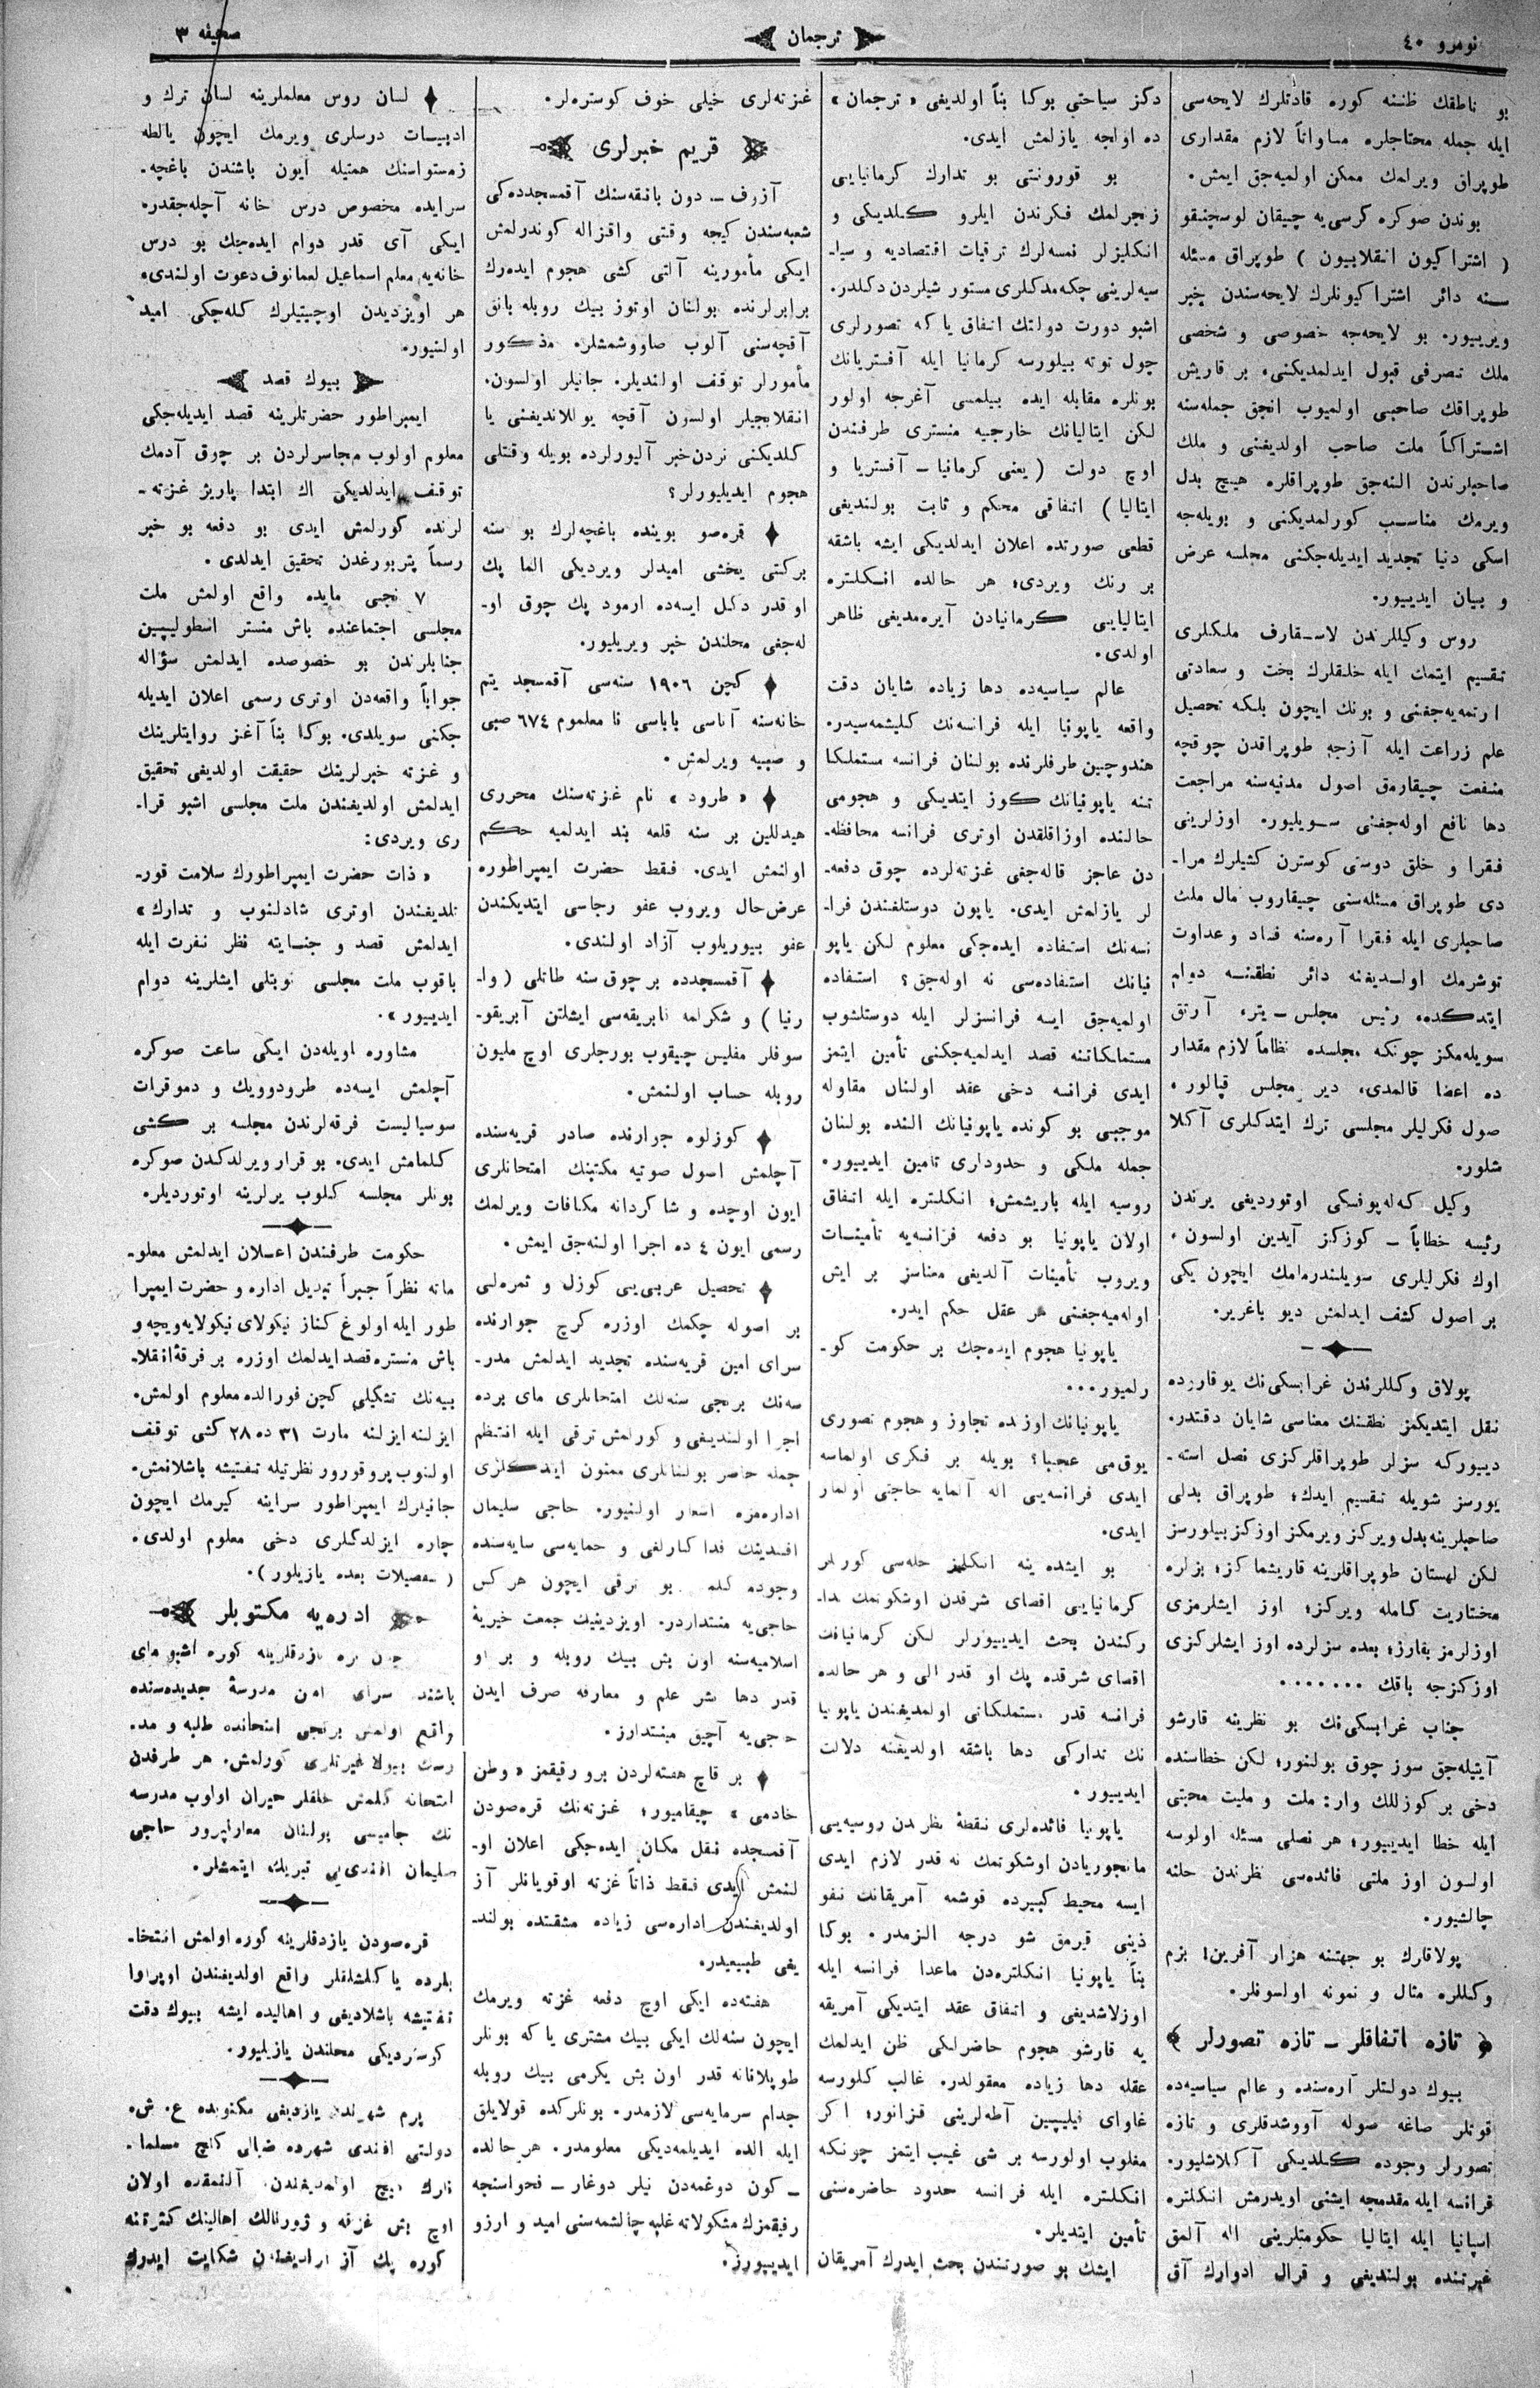 نومرو ٤٠
ترجمان
صحیفه ٣
بو ناطقك ظننه كوره قادتلرك لایحه‌سی
ایله جمله محتاجلره مساواتاً لازم مقداری
طوپراق ویرلمك ممكن اولمیه‌جق ایمش.
بوندن صوكره كرسی‌یه چیقان لوسچنیقو
( اشتراكیون انقلابیون ) طوپراق مسئله
سنه دائر اشتراكیونلرك لایحه‌سندن خبر
ویرییور. بو لایحه‌جه خصوصی و شخصی
ملك تصرفی قبول ایدلمدیكنی، بر قاریش
طوپراقك صاحبی اولمیوب انجق جمله‌سنه
اشتراكاً ملت صاحب اولدیغنی و ملك
صاحبلرندن النه‌جق طوپراقلره هیچ بدل
ویرمك مناسب كورلمدیكنی و بویله‌جه
اسكی دنیا تجدید ایدیله‌جكنی مجلسه عرض
و بیان ایدییور.
روس وكیللرندن لاسقارف ملكلری
تقسیم ایتمك ایله خلقلرك بخت و سعادتی
ارتمه‌یه‌جغنی و بونك ایچون بلكه تحصیل
علم زراعت ایله آزجه طوپراقدن چوقچه
منفعت چیقارمق اصول مدنیه‌سنه مراجعت
دها نافع اوله‌جغنی سویلیور. اوزلرینی
فقرا و خلق دوستی كوسترن كشیلرك مرا-
دی طوپراق مسئله‌سنی چیقاروب مال ملك
صاحبلری ایله فقرا آره‌سنه فساد و عداوت
توشرمك اولدیغنه دائر نطقنه دوام
ایتدكده، رئیس مجلس ــ یتر، آرتق
سویله‌مكز چونكه مجلسده نظاماً لازم مقدار
ده اعضا قالمدی، دیر مجلس قپالور.
صول فكرلیلر مجلسی ترك ایتدكلری آكلا
شلور.
وكیل كه‌له‌پوفسكی اوتوردیغی یرندن
رئیسه خطاباً ــ كوزكز آیدین اولسون،
اوك فكرلیلری سویلندرمامك ایچون یكی
بر اصول كشف ایدلمش دیو باغریر.
پولاق وكللرندن غرابسكی‌نك یوقاروده
نقل ایتدیكمز نطقنك معناسی شایان دقتدر.
دییوركه سزلر طوپراقلركزی نصل استه-
یورسز شویله تقسیم ایدك؛ طوپراق بدلی
صاحبلرینه بدل ویركز ویرمكز اوزكز بیلورسز
لكن لهستان طوپراقلرینه قاریشماكز؛ بزلره
مختاریت كامله ویركز؛ اوز ایشلرمزی
اوزلرمز بقارز؛ بعده سزلرده اوز ایشلركزی
اوزكزجه باقك .......
جناب غرابسكی‌نك بو نظرینه قارشو
آیتیله‌جق سوز چوق بولنور؛ لكن خطاسنده
دخی بر كوزللك وار: ملت و ملیت محبتی
ایله خطا ایدییور؛ هر نصلی مسئله اولوسه
اولسون اوز ملتی فائده‌سی نظرندن حلنه
چالشیور.
پولاقارك بو جهتنه هزار آفرین! بزم
وكللره مثال و نمونه اولسونلر.
﴿ تازه اتفاقلر ــ تازه تصورلر ﴾
بیوك دولتلر آره‌سنده و عالم سیاسیه‌ده
قوتلر صاغه صوله آووشدقلری و تازه
تصورلر وجوده كلدیكی آكلاشلیور.
فرانسه ایله مقدمجه ایشنی اویدرمش انكلتره
اسپانیا ایله ایتالیا حكومتلرینی اله آلمق
غیرتنده بولندیغی و قرال ادوارك آق
دكز سیاحتی بوكا بناً اولدیغی « ترجمان »
ده اولجه یازلمش ایدی.
بو قورونتی بو تدارك كرمانیایی
زنجرلمك فكرندن ایلرو كلدیكی و
انكلیزلر نمسه‌لرك ترقیات اقتصادیه و سیا-
سیه‌لرینی چكه‌مدكلری مستور شیلردن دكلدر.
اشبو دورت دولتك اتفاق یا كه تصورلری
چول توته بیلورسه كرمانیا ایله آفستریانك
بونلره مقابله ایده بیلمسی آغرجه اولور
لكن ایتالیانك خارجیه منستری طرفندن
اوچ دولت ( یعنی كرمانیا ــ آفستریا و
ایتالیا ) اتفاقی محكم و ثابت بولندیغی
قطعی صورتده اعلان ایدلدیكی ایشه باشقه
بر رنك ویردی؛ هر حالده انكلتره
ایتالیایی كرمانیادن آیره‌مدیغی ظاهر
اولدی.
عالم سیاسیه‌ده دها زیاده شایان دقت
واقعه یاپونیا ایله فرانسه‌نك كلیشمه‌سیدر.
هندوچین طرفلرنده بولنان فرانسه مستملكا
تنه یاپونیانك كوز ایتدیكی و هجومی
حالنده اوزاقلقدن اوتری فرانسه محافظه-
دن عاجز قاله‌جغی غزته‌لرده چوق دفعه-
لر یازلمش ایدی. یاپون دوستلغندن فرا-
نسه‌نك استفاده ایده‌جكی معلوم لكن یاپو
نیانك استفاده‌سی نه اوله‌جق؟ استفاده
اولمیه‌جق ایسه فرانسزلر ایله دوستلشوب
مستملكاتنه قصد ایدلمیه‌جكنی تأمین ایتمز
ایدی فرانسه دخی عقد اولنان مقاوله
موجبی بو كونده یاپونیانك النده بولنان
جمله ملكی و حدوداری تامین ایدییور.
روسیه ایله باریشمش؛ انكلتره ایله اتفاق
اولان یاپونیا بو دفعه فرانسه‌یه تأمینات
ویروب تأمینات آلدیغی معناسز بر ایش
اوله‌میه‌جغنی هر عقل حكم ایدر.
یاپونیا هجوم ایده‌جك بر حكومت كو-
رلمیور...
یاپونیانك اوزنده تجاوز و هجوم تصوری
یوق‌می عجبا؟ بویله بر فكری اولماسه
ایدی فرانسه‌یی اله آلمایه حاجتی اولمار
ایدی.
بو ایشده ینه انكلیز حله‌سی كورلر
كرمانیایی اقصای شرقدن اوشكوتمك تدا-
ركندن بحث ایدییورلر لكن كرمانیانك
اقصای شرقده پك او قدر الی و هر حالده
فرانسه قدر مستملكاتی اولمدیغندن یاپونیا
نك تداركی دها باشقه اولدیغنه دلالت
ایدییور.
یاپونیا فائده‌لری نقطهٔ نظرندن روسیه‌یی
مانجوریادن اوشكوتمك نه قدر لازم ایدی
ایسه محیط كبیرده قوشمه آمریقانك نفو
ذینی قیرمق شو درجه الزمدر. بوكا
بناً یاپونیا انكلتره‌دن ماعدا فرانسه ایله
اوزلاشدیغی و اتفاق عقد ایتدیكی آمریقه
یه قارشو هجوم حاضرلكی ظن ایدلمك
عقله دها زیاده معقولدر. غالب كلورسه
غاوای فیلیپین آطه‌لرینی قزانور؛ اكر
مغلوب اولورسه بر شی غیب ایتمز چونكه
انكلتره ایله فرانسه حدود حاضره‌سنی
تأمین ایتدیلر.
ایشك بو صورتندن بحث ایدرك آمریقان
غزته‌لری خیلی خوف كوستره‌لر.
قریم خبرلری
آزوف ــ دون بانقه‌سنك آقمسجدده‌كی
شعبه‌سندن كیجه وقتی واقزاله كوندرلمش
ایكی مأمورینه آلتی كشی هجوم ایده‌رك
برابرلرنده بولنان اوتوز بیك روبله بانق
آقچه‌سنی آلوب صاووشمشلر. مذكور
مأمورلر توقف اولندیلر. جانیلر اولسون،
انقلابجیلر اولسون آقچه یوللاندیغنی یا
كلدیكنی نردن خبر آلیورلرده بویله وقتلی
هجوم ایدیلیورلر؟
قره‌صو بوینده باغچه‌لرك بو سنه
بركتی یخشی امیدلر ویردیكی الما پك
او قدر دكل ایسه‌ده ارمود پك چوق او-
له‌جغی محلندن خبر ویریلیور.
كچن ١٩٠٦ سنه‌سی آقمسجد یتم
خانه‌سنه آناسی باباسی نا معلموم ٦٧٤ صبی
و صبیه ویرلمش.
« طرود » نام غزته‌سنك محرری
هیدللین بر سنه قلعه بند ایدلمیه حكم
اولنمش ایدی. فقط حضرت ایمپراطوره
عرض‌حال ویروب عفو رجاسی ایتدیكندن
عفو بیوریلوب آزاد اولندی.
آقمسجدده بر چوق سنه طاتلی ( وا-
رنیا ) و شكرلمه فابریقه‌سی ایشلتن آبریقو-
سوفلر مفلیس چیقوب بورجلری اوچ ملیون
روبله حساب اولنمش.
كوزلوه جوارنده صادر قریه‌سنده
آچلمش اصول صوتیه مكتبنك امتحانلری
ایون اوچده و شاكردانه مكافات ویرلمك
رسمی ایون ٤ ده اجرا اولنه‌جق ایمش.
تحصیل عربی‌یی كوزل و ثمره‌لی
بر اصوله چكمك اوزره كرچ جوارنده
سرای امین قریه‌سنده تجدید ایدلمش مدر-
سه‌نك برنجی سنه‌لك امتحانلری مای برده
اجرا اولندیغی و كورلمش ترقی ایله انتظم
جمله حاضر بولنانلری ممنون ایتدكلری
اداره‌مزه اشعار اولنیور. حاجی سلیمان
افندینك فداكارلغی و حمایه‌سی سایه‌سنده
وجوده كلمه بو ترقی ایچون هر كس
حاجی‌یه منتداردر. اویزدینیك جمعت خیریهٔ
اسلامیه‌سنه اون بش بیك روبله و بر او
قدر دها نشر علم و معارفه صرف ایدن
حاجی‌یه آچیق مینتدارز.
بر قاچ هفته‌لردن برو رقیقمز « وطن
خادمی » چیقامیور؛ غزته‌نك قره‌صودن
آقمسجده نقل مكان ایده‌جكی اعلان او-
لنمش ایدی فقط ذاتاً غزته اوقویانلر آز
اولدیغندن اداره‌سی زیاده مشقتده بولند-
یغی طبیعیدر.
هفته‌ده ایكی اوچ دفعه غزته ویرمك
ایچون سنه‌لك ایكی بیك مشتری یا كه بونلر
طوپلانانه قدر اون بش یكرمی بیك روبله
جدام سرمایه‌سی لازمدر. بونلركده قولایلق
ایله الده ایدیلمه‌دیكی معلومدر. هر حالده
ــ كون دوغمه‌دن نیلر دوغار ــ فحواسنجه
رفیقمزك مشكولاته غلبه چالشمه‌سنی امید و ارزو
ایدییورز.
لسان روس معلملرینه لسان ترك و
ادبیات درسلری ویرمك ایچون یالطه
زمستواسنك همتیله ایون باشندن باغچه-
سرایده مخصوص درس خانه آچله‌جقدر.
ایكی آی قدر دوام ایده‌جك بو درس
خانه‌یه معلم اسماعیل لعمانوف دعوت اولندی.
هر اویزدیدن اوچیتیلرك كله‌جكی امید
اولنیور.
بیوك قصد
ایمپراطور حضرتلرینه قصد ایدیله‌جكی
معلوم اولوب مجاسرلردن بر چوق آدمك
توقف ایدلدیكی اك ابتدا پاریژ غزته-
لرنده كورلمش ایدی بو دفعه بو خبر
رسماً پتربورغدن تحقیق ایدلدی.
٧ نجی مایده واقع اولمش ملت
مجلسی اجتماعنده باش منستر استولیپین
جنابلرندن بو خصوصده ایدلمش سؤاله
جواباً واقعه‌دن اوتری رسمی اعلان ایدیله
جكنی سویلدی. بوكا بناً آغز روایتلرینك
و غزته خبرلرینك حقیقت اولدیغی تحقیق
ایدلمش اولدیغندن ملت مجلسی اشبو قرا-
ری ویردی:
« ذات حضرت ایمپراطورك سلامت قور-
تلدیغندن اوتری شادلنوب و تدارك
ایدلمش قصد و جنایته نظر نفرت ایله
باقوب ملت مجلسی نوبتلی ایشلرینه دوام
ایدییور ».
مشاوره اویله‌دن ایكی ساعت صوكره
آچلمش ایسه‌ده طرودوویك و دموقرات
سوسیالیست فرقه‌لرندن مجلسه بر كشی
كلمامش ایدی. بو قرار ویرلدكدن صوكره
بونلر مجلسه كلوب یرلرینه اوتوردیلر.
حكومت طرفندن اعلان ایدلمش معلو-
ماته نظراً جبراً تبدیل اداره و حضرت ایمپرا
طور ایله اولوغ كناز نیكولای نیكولایه‌ویچه و
باش منستره قصد ایدلمك اوزره بر فرقهٔ انقلا-
بیه‌نك تشكیلی كچن فورالده معلوم اولمش.
ایزلنه ایزلنه مارت ٣١ ده ٢٨ كشی توقف
اولنوب پروقورور نظرتیله تفتیشه باشلانمش.
جانیلرك ایمپراطور سراینه كیرمك ایچون
چاره ایزلدكلری دخی معلوم اولدی.
( تفصیلات بعده یازیلور ).
ادره‌یه مكتوبلر
یازدقلرینه كوره اشبو مای
باشنده سرای امن مدرسهٔ جدیده‌سنده
واقع اولمش برنجی امتحانده طلبه و مد-
غیرتلری كورلمش. هر طرفدن
امتحانه كلمش خلقلر حیران اولوب مدرسه
نك جامیسی بولنان معارفپرور حاجی
سلیمان افندی‌یی تبریك ایتمشلر.
قره‌صودن یازدقلرینه كوره اولمش انتخا-
بلرده یاكلشلقلر واقع اولدیغندن اوپراوا
تفتیشه باشلادیغی و اهالیده ایشه بیوك دقت
كوستردیكی محلندن یازیلیور.
پرم شهرلدن یازدیغی مكتوبده ع. ش.
دولتی افندی شهرده
اولمدیغندن، آلنمقده اولان
اوچ بش غزته و ژورنالك اهالینك كثرتنه
كوره پك آز شكایت ایدرك